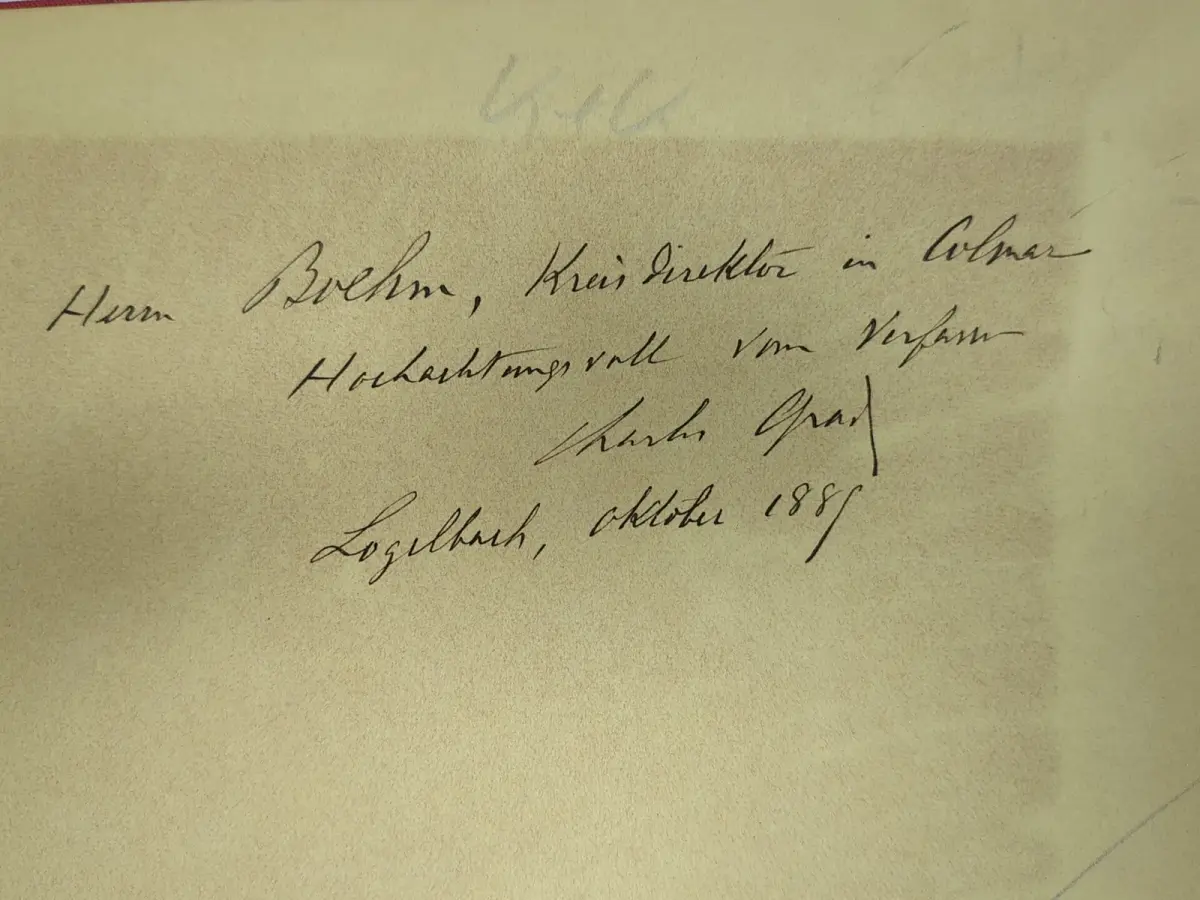 Herrn Boehm, Kreisdirektor in Colmar
Hochachtungsvoll vom Verfasser
Charles Grad
Logelbach, Oktober 1889